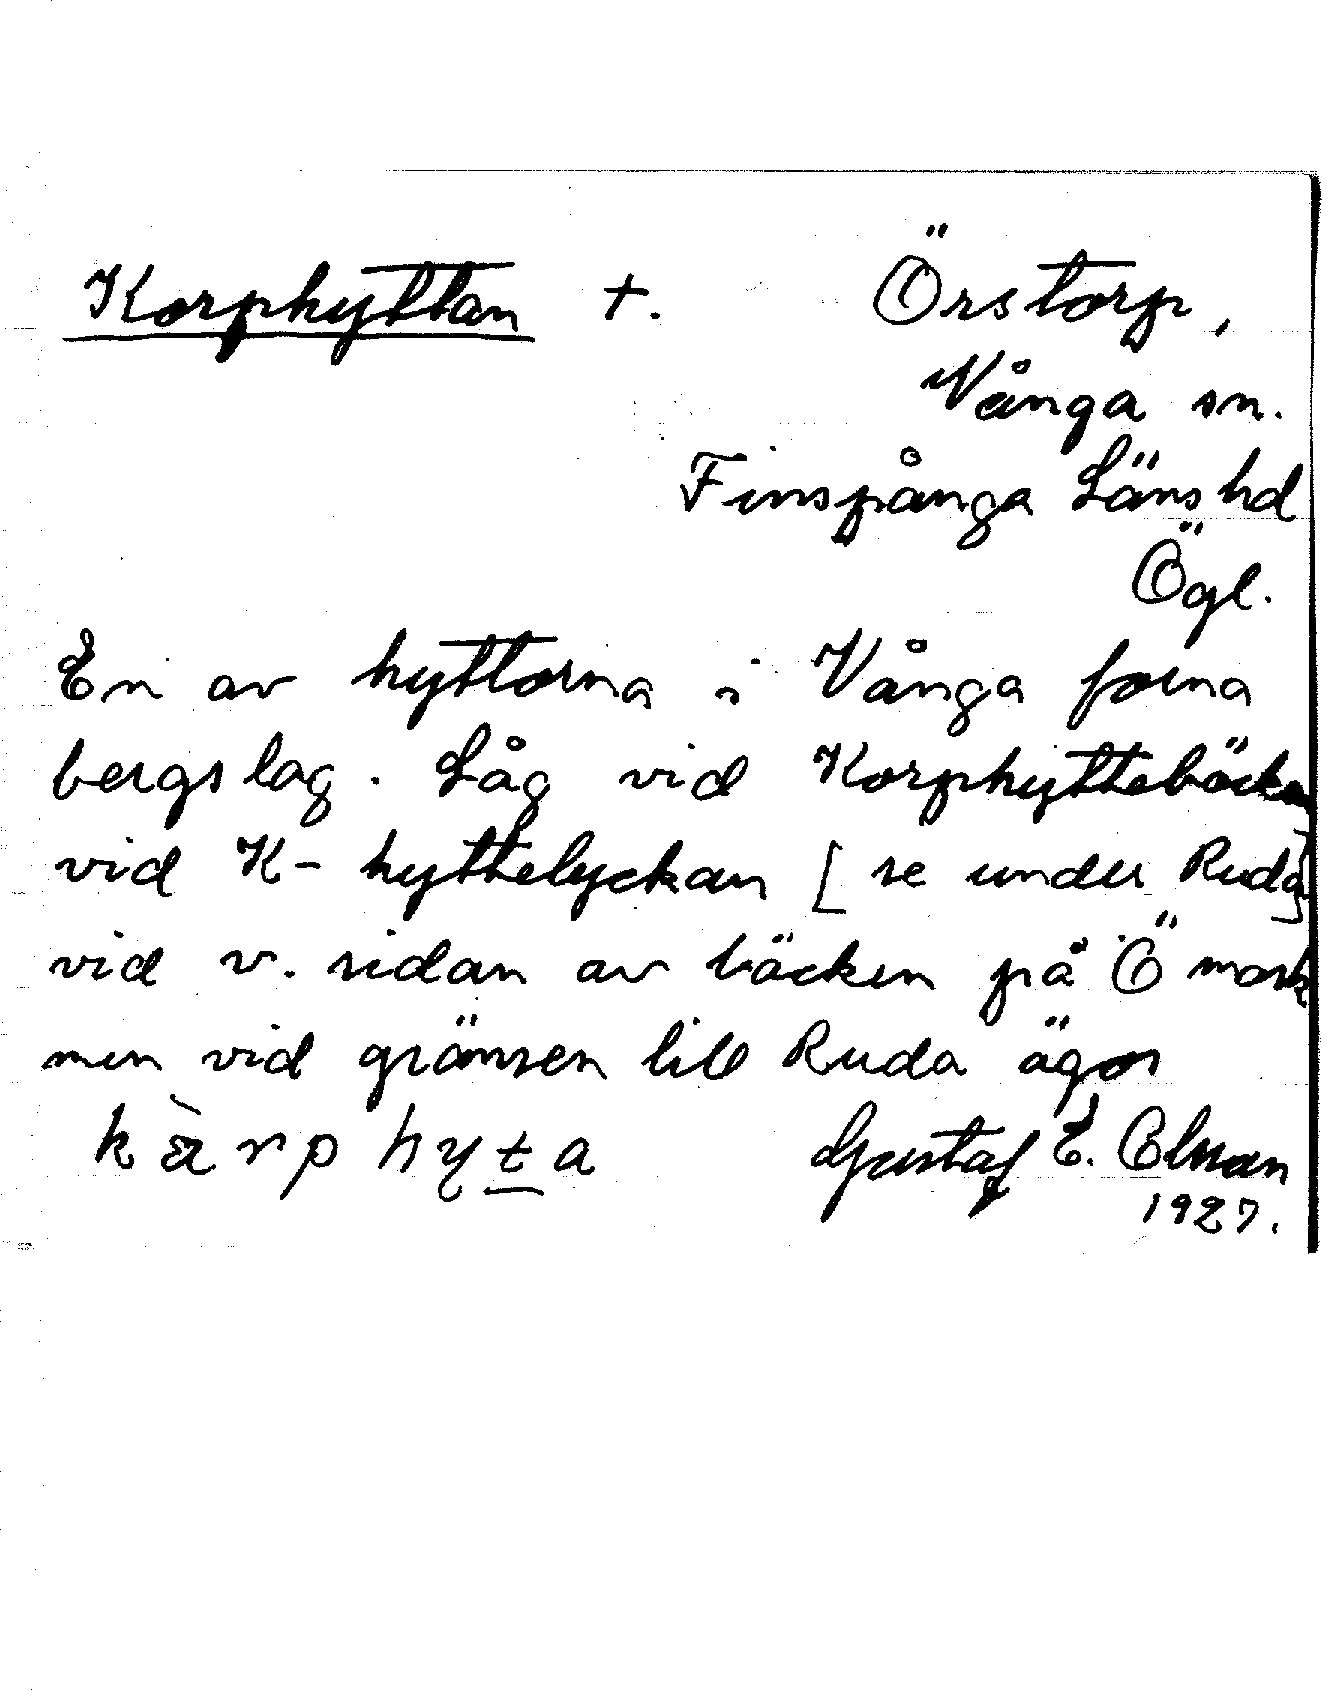 Korphyttan +. Örstorp,
Vånga sn.
Finspånga Länshd
Ögl.
En av hyttorna i Vånga forna
bergslag. Låg vid Korphyttebäcken
vid K-hyttelyckan [se under Ruda]
vid v. sidan av bäcken på Ö mark
men vid gränsen till Ruda ägor
Gustaf E. Elman
1927.